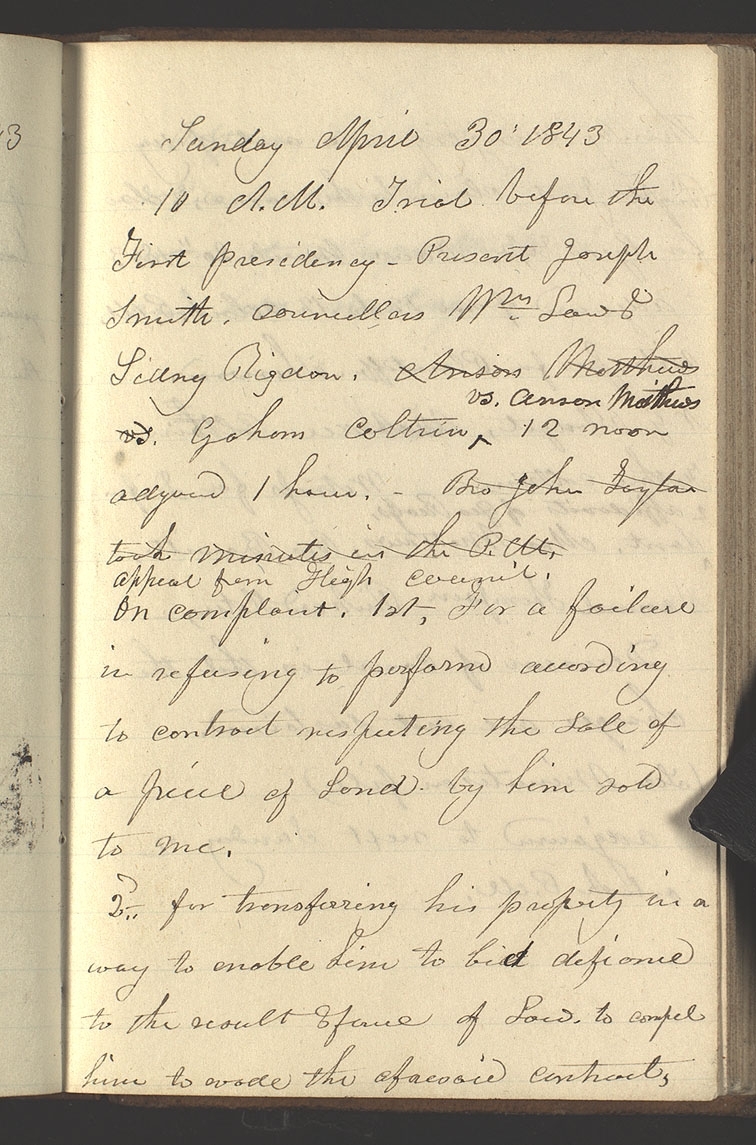 Sunday April 30th 1843
10 A.M. Trial before the
First presidency - Present Joseph
Smith. councillors Wm Law &
Sidney Rigdon. Anson Matthews
vs. Anson Mathews
vs. Graham Coltrin, ^ 12 noon
adjourd 1 hour. - Bro John Taylor
took minutes in the P.M.
appeal from High council.
On complaint. 1st, For a failure
in refusing to perform according
to contract respecting the sale of
a piece of Land by him sold
to me.
2d. for transfering his property in a
way to enable him to bid defiance
to the result & force of Law. to compel
him to evade the aforesaid contract,
43